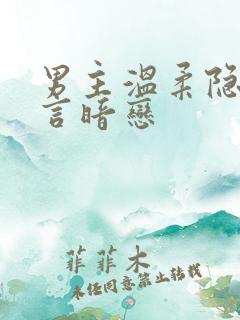 男主溫柔隐
言暗戀
菲菲木
未经同意禁止转载